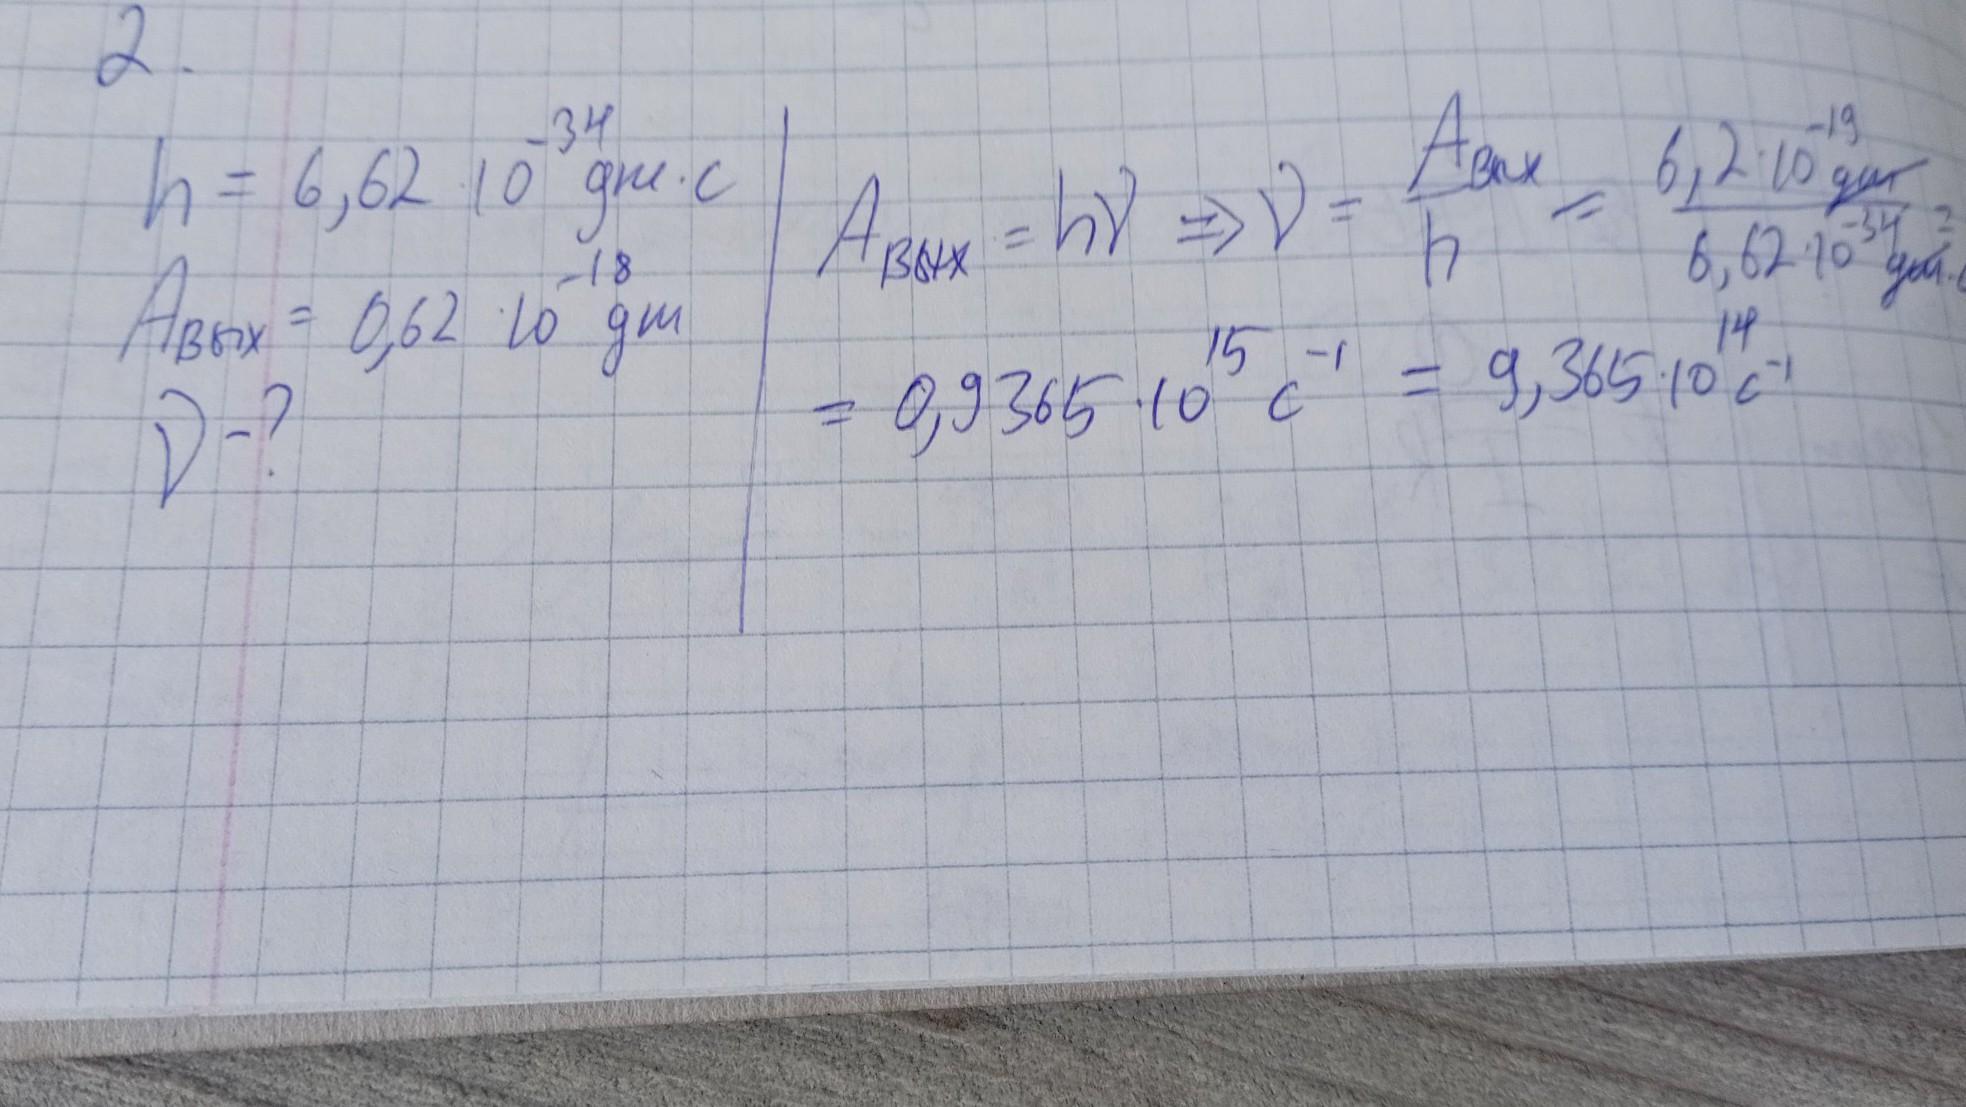 2.
h = 6,62 · 10⁻³⁴ дж · с
Aвых = 0,62 · 10⁻¹⁸ дж
ν - ?
Aвых = hν ⇒ ν = Aвых / h = 6,2 · 10⁻¹⁹ дж / 6,62 · 10⁻³⁴ дж · с =
= 0,9365 · 10¹⁵ с⁻¹ = 9,365 · 10¹⁴ с⁻¹